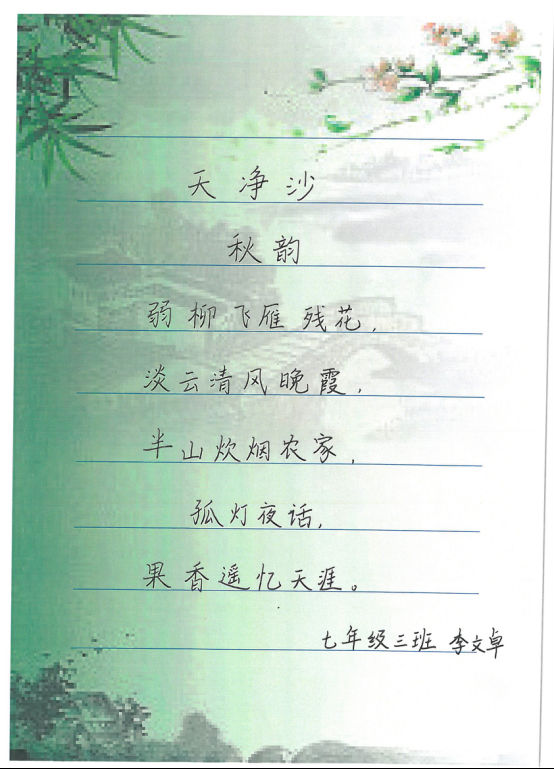 天净沙
秋韵
弱柳飞雁残花，
淡云清风晚霞，
半山炊烟农家，
孤灯夜话，
果香遥忆天涯。
七年级三班 李文卓